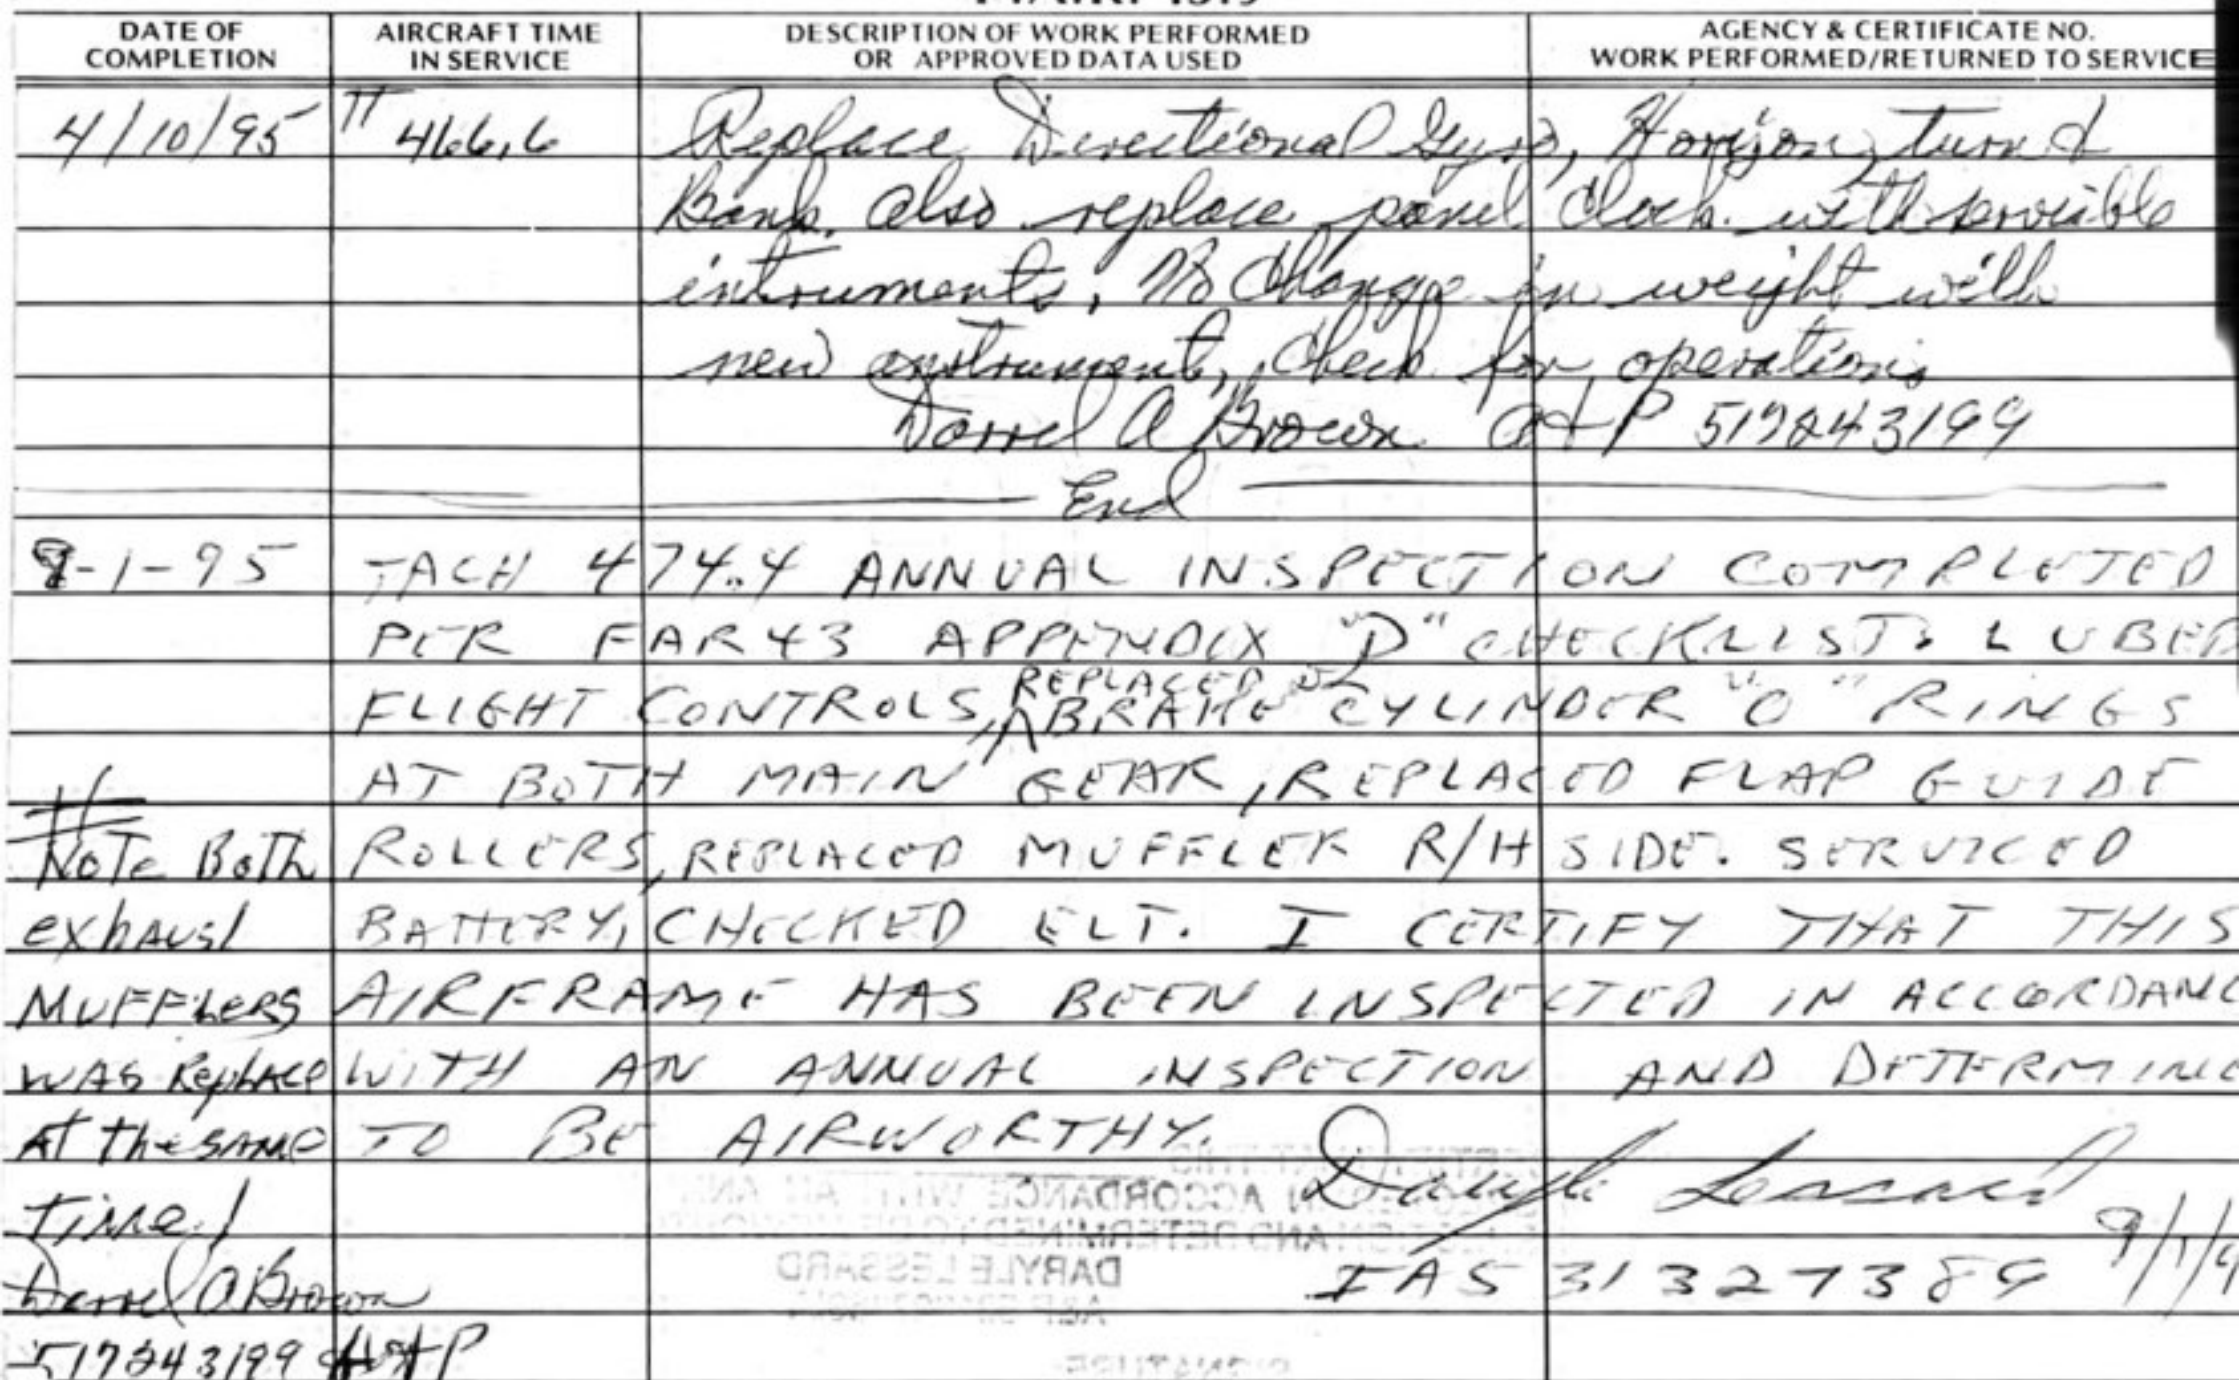 DATE OF COMPLETION
AIRCRAFT TIME IN SERVICE
DESCRIPTION OF WORK PERFORMED OR APPROVED DATA USED
AGENCY & CERTIFICATE NO. WORK PERFORMED/RETURNED TO SERVICE
4/10/95 TT 466.6 Replace Directional Gyro, Horizon, turn &
Bank. Also replace panel Clock with servisible
intruments, No Change in weight with
new instrument, Check for operations
Darrel A Brown A+P 517243199
End
9-1-95 TACH 474.4 ANNUAL INSPECTION COMPLETED
PER FAR 43 APPENDIX "D" CHECKLIST. LUBED
FLIGHT CONTROLS, REPLACED BRAKE CYLINDER "O" RINGS
AT BOTH MAIN GEAR, REPLACED FLAP GUIDE
ROLLERS, REPLACED MUFFLER R/H SIDE. SERVICED
BATTERY, CHECKED ELT. I CERTIFY THAT THIS
AIRFRAME HAS BEEN INSPECTED IN ACCORDANC
WITH AN ANNUAL INSPECTION AND DETERMINE
TO BE AIRWORTHY.
Daryle Lessard
IAS 31327389 9/1/9
Note Both
exhaust
MUFFLERS
WAS Replace
At the SAME
Time!
Darrel A Brown
517243199 A+P
ACCORDANCE WITH AN ANN
AND DETERMINED TO BE
DARYLE LESSARD
SIGNATURE